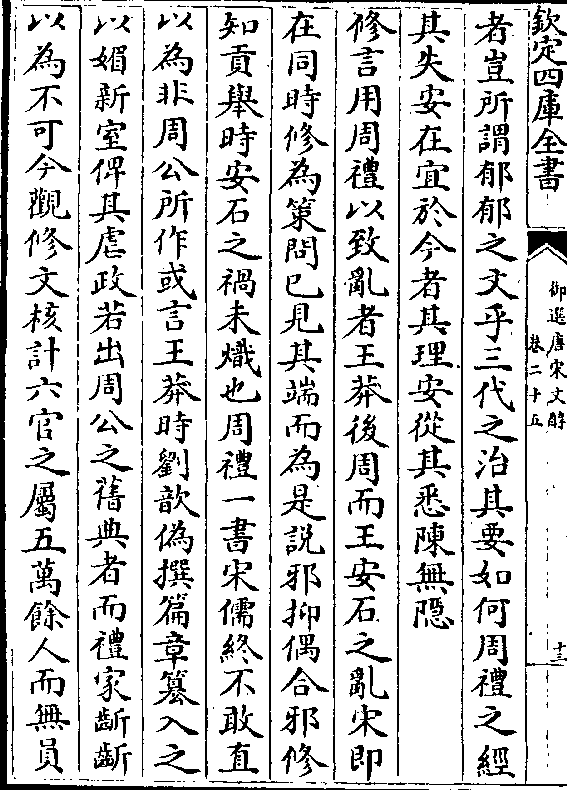 欽定四庫全書
御選唐宋文醇
卷二十五
十三
者豈所謂郁郁之文乎三代之治其要如何周禮之經
其失安在宜於今者其理安從其悉陳無隱
修言用周禮以致亂者王莽後周而王安石之亂宋即
在同時修為策問已見其端而為是説邪抑偶合邪修
知貢舉時安石之禍未熾也周禮一書宋儒終不敢直
以為非周公所作或言王莽時劉歆偽撰篇章簒入之
以媚新室俾其虐政若出周公之舊典者而禮家齗齗
以為不可今觀修文核計六官之屬五萬餘人而無員